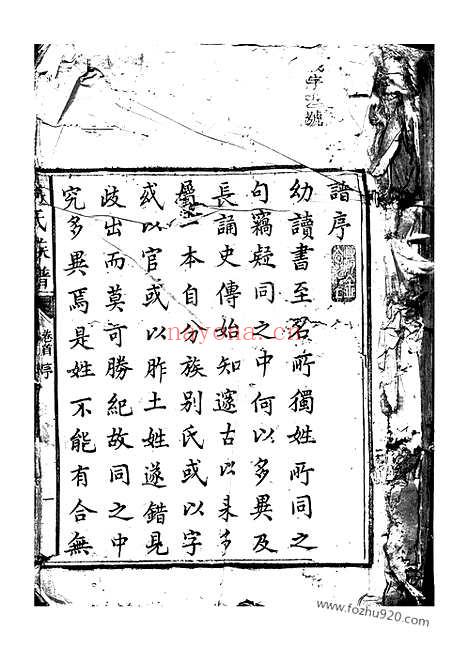 譜序
幼讀書至名所獨姓所同之
句竊疑同之中何以多異及
長誦史傳始知邃古以來多
屬一本自分族别氏或以字
或以官或以胙土姓遂錯見
歧出而莫可勝紀故同之中
究多異焉是姓不能有合無
氏族譜
卷首
序
nayona.cn
www.fozhu920.com